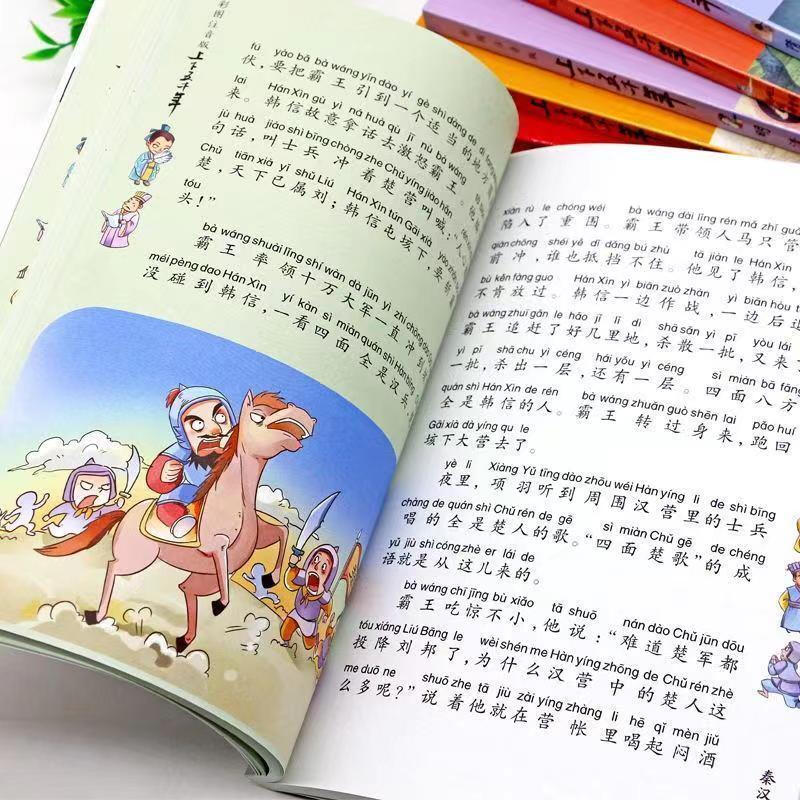 彩图注音版
上下五千年
fú yào bǎ bà wáng yǐn dào yí gè shì dàng de dì
伏，要把霸王引到一个适当的地方
lai Hán Xìn gù yì ná huà qù jī nù bà wáng
来。韩信故意拿话去激怒霸王。
jù huà jiào shì bīng chòng zhe Chǔ yíng jiào hǎn
句话，叫士兵冲着楚营叫喊：“人
Chǔ tiān xià yǐ shǔ Liú Hán Xìn tún Gāi xià
楚，天下已属刘；韩信屯垓下，要
tóu
头！”
bà wáng shuài lǐng shí wàn dà jūn yì zhí chōng dào
霸王率领十万大军一直冲到
méi pèng dao Hán Xìn yí kàn sì miàn quán shì Hàn bīng
没碰到韩信，一看四面全是汉兵，
xiàn rù le chóng wéi bà wáng dài lǐng rén mǎ zhǐ guǎn
陷入了重围。霸王带领人马只管
qián chōng shéi yě dǐ dǎng bú zhù tā jiàn le Hán Xìn
前冲，谁也抵挡不住。他见了韩信，
bù kěn fàng guo Hán Xìn yì biān zuò zhàn yì biān hòu
不肯放过。韩信一边作战，一边后退
bà wáng zhuī gǎn le hǎo jǐ lǐ dì shā sàn yì pī yòu lái
霸王追赶了好几里地，杀散一批，又来了
yì pī shā chu yì céng hái yǒu yì céng sì miàn bā fāng
一批，杀出一层，还有一层。四面八方
quán shì Hán Xìn de rén bà wáng zhuǎn guò shēn lai pǎo huí
全是韩信的人。霸王转过身来，跑回
Gāi xià dà yíng qu le
垓下大营去了。
yè li Xiàng Yǔ tīng dào zhōu wéi Hàn yíng li de shì bīng
夜里，项羽听到周围汉营里的士兵
chàng de quán shì Chǔ rén de gē sì miàn Chǔ gē de chéng
唱的全是楚人的歌。“四面楚歌”的成
yǔ jiù shì cóng zhè er lái de
语就是从这儿来的。
bà wáng chī jīng bù xiǎo tā shuō nán dào Chǔ jūn dōu
霸王吃惊不小，他说：“难道楚军都
tóu xiáng Liú Bāng le wèi shén me Hàn yíng zhōng de Chǔ rén zhè
投降刘邦了，为什么汉营中的楚人这
me duō ne shuō zhe tā jiù zài yíng zhàng li hē qǐ mèn jiǔ
么多呢？”说着他就在营帐里喝起闷酒
秦汉
上下五千年
上下五千年
上下五千年
上下五千年